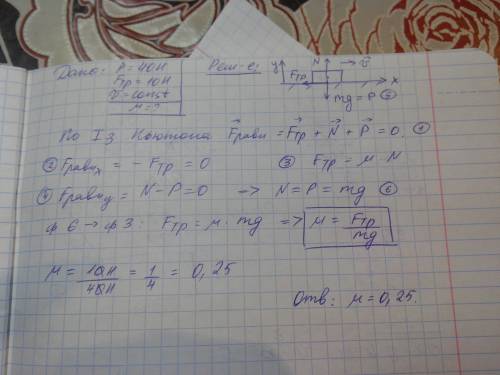 Дано: P = 40Н
Fтр = 10Н
V = const
μ = ?
Реш-е:
y N → V⃗
Fтр x
mg = P ⑤
По I з Ньютона F⃗равн = F⃗тр + N⃗ + P⃗ = 0. ①
② Fравнx = - Fтр = 0 ③ Fтр = μ · N
④ Fравнy = N - P = 0 → N = P = mg ⑥
ф 6 → ф 3: Fтр = μ · mg => μ = Fтр / mg
μ = 10Н / 40Н = 1/4 = 0,25
Отв: μ = 0,25.